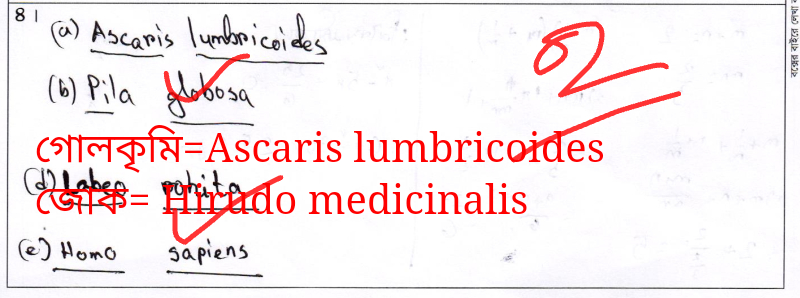 8|
(a) Ascaris lumbricoides
(b) Pila globosa
গোলকৃমি=Ascaris lumbricoides
(d) Labeo rohita
জোঁক= Hirudo medicinalis
(e) Homo sapiens